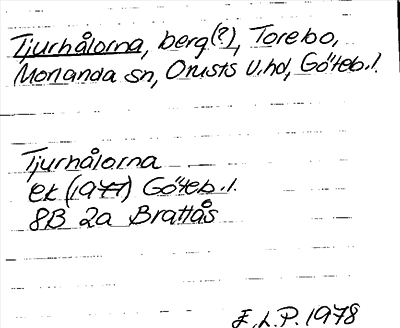 Tjurhålorna, berg(?), Torebo,
Morlanda sn, Orusts V.hd, Göteb.l.
Tjurhålorna
ek (1977) Göteb.l.
8B 2a Brattås
E.L.P. 1978